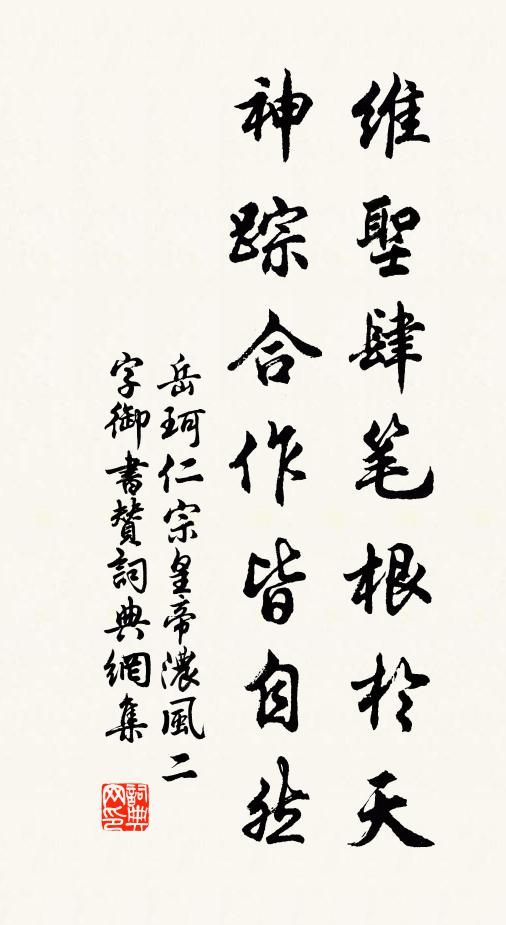 維聖肆笔根於天
神踪合作皆自然
岳珂仁宗皇帝濃風二
字御書贊詞典網集
詞典网印